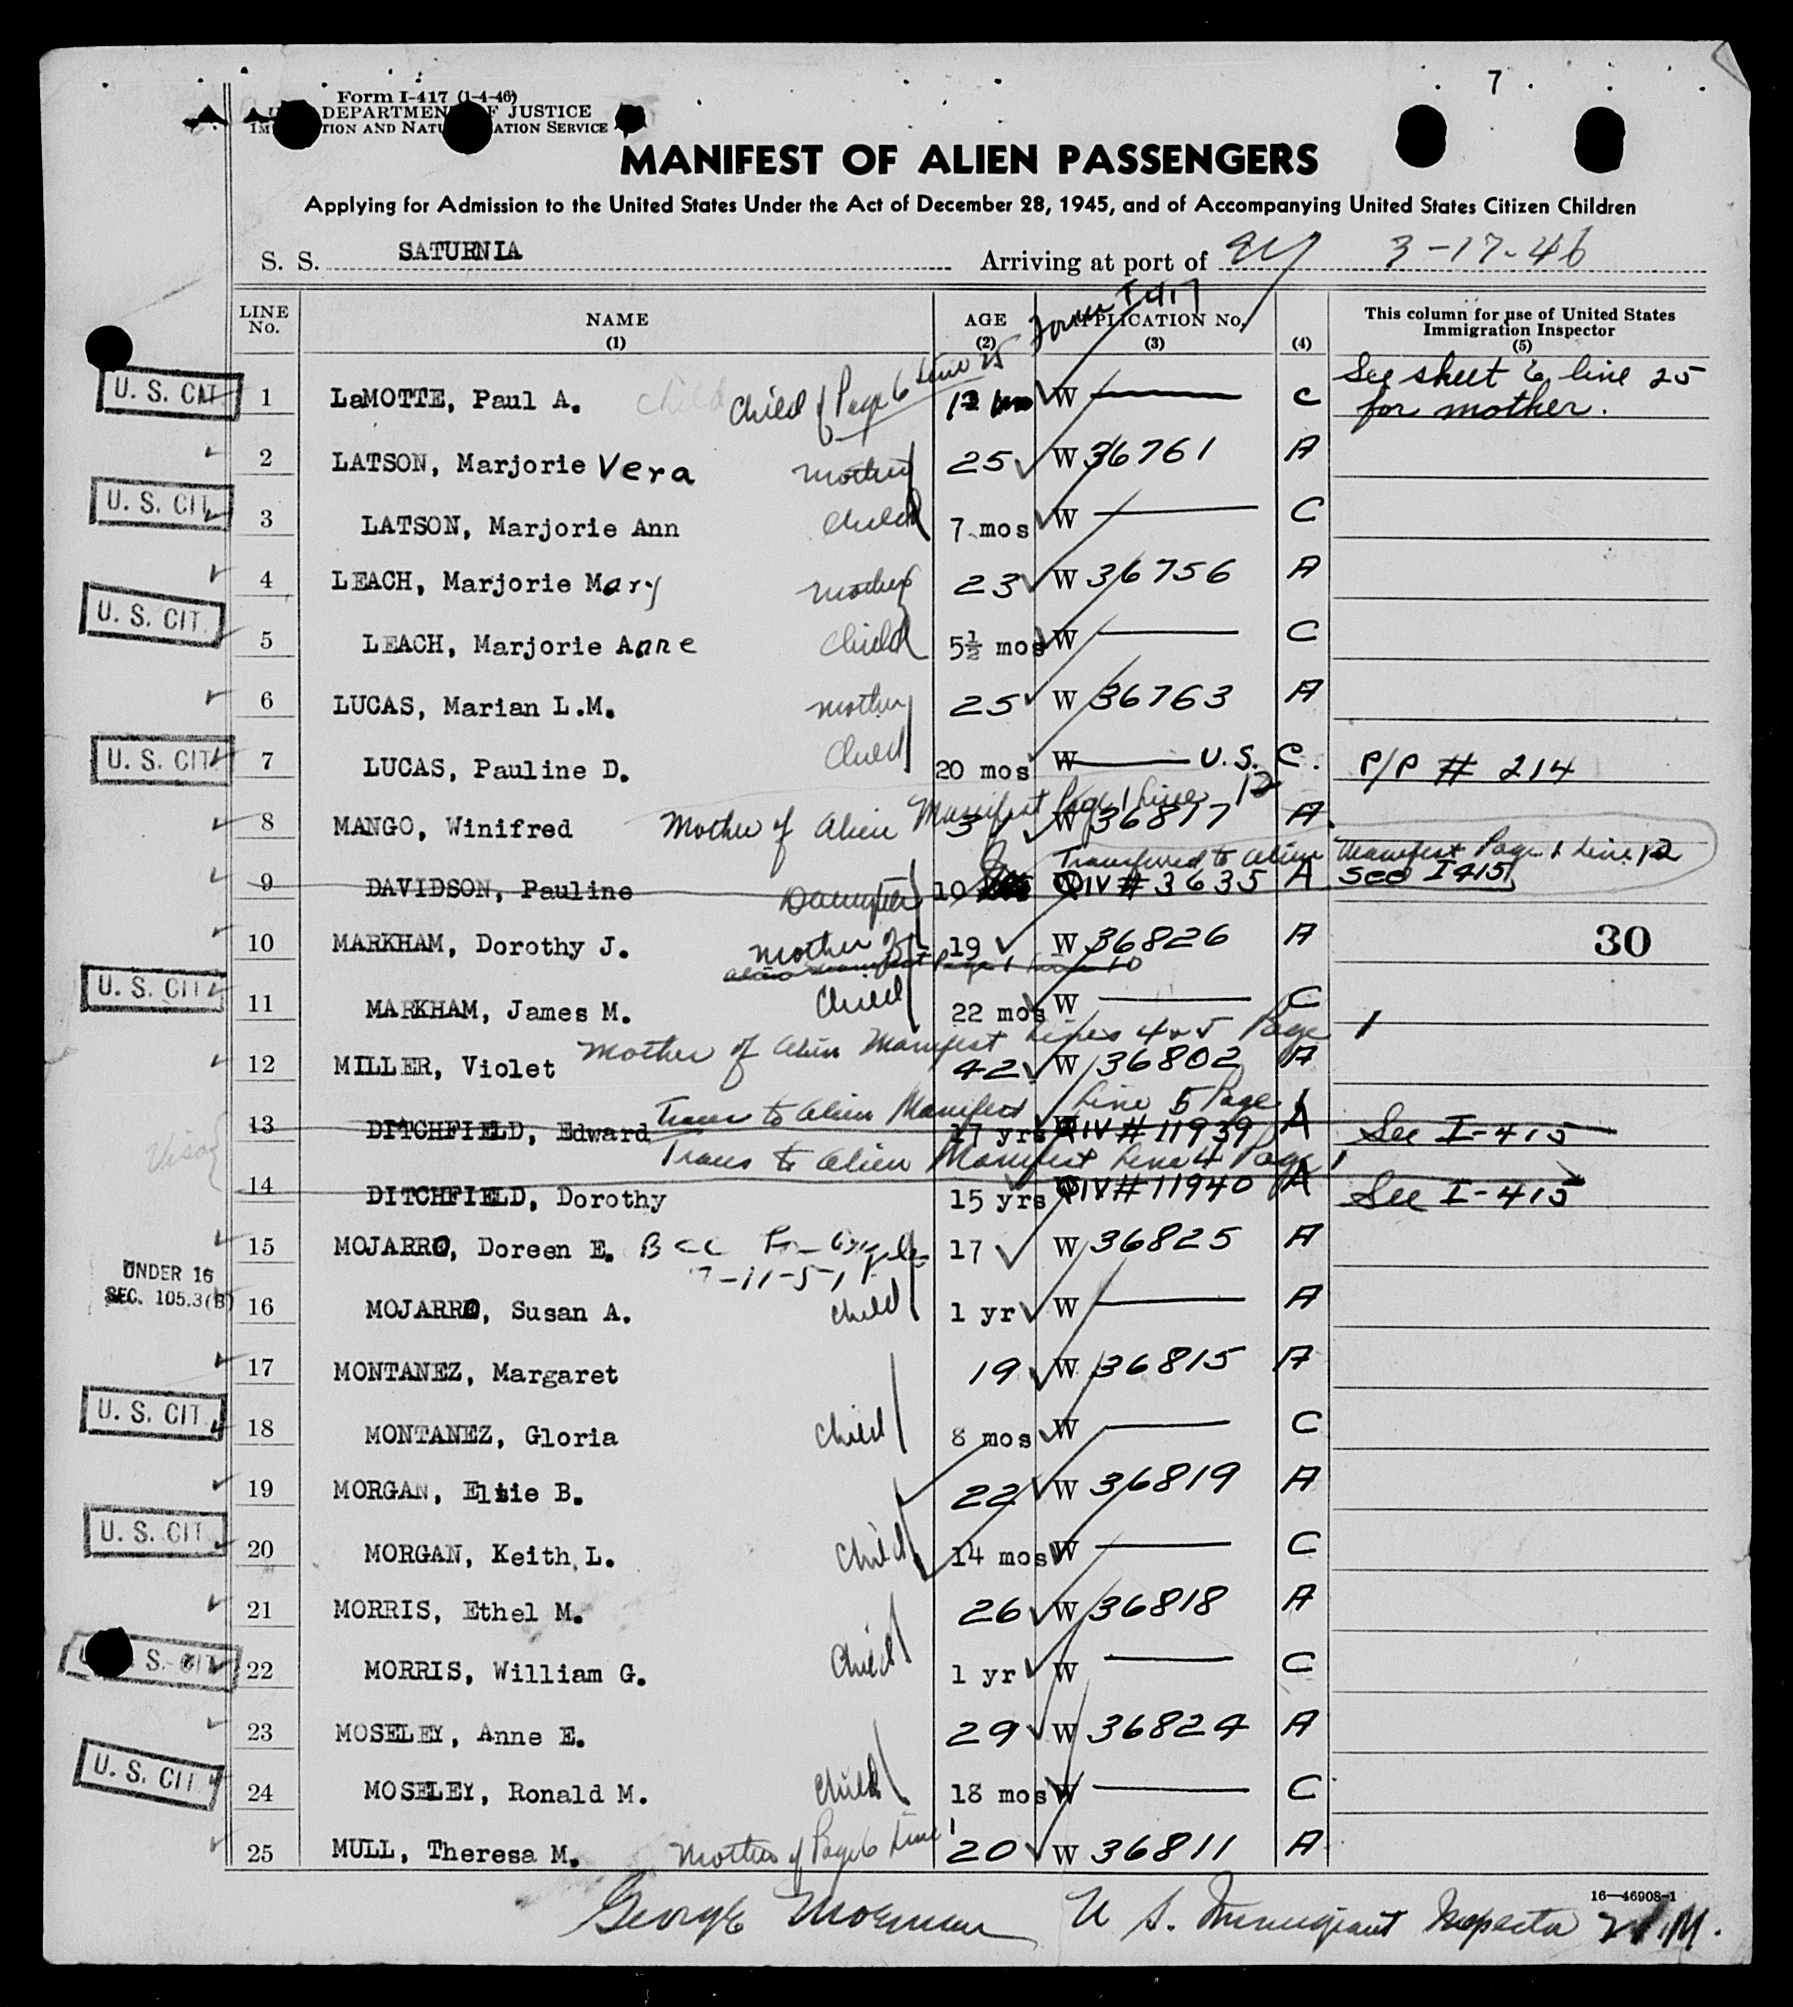 7
Form I-417 (1-4-46)
DEPARTMENT OF JUSTICE
IMMIGRATION AND NATURALIZATION SERVICE
MANIFEST OF ALIEN PASSENGERS
Applying for Admission to the United States Under the Act of December 28, 1945, and of Accompanying United States Citizen Children
S. S. SATURNIA Arriving at port of NY 3-17-46
Form I 417
LINE No. NAME (1) AGE (2) APPLICATION No. (3) (4) This column for use of United States Immigration Inspector (5)
U. S. CIT 1 LaMOTTE, Paul A. Child of Page 6 Line 25 W C See sheet 6 line 25 for mother.
2 LATSON, Marjorie Vera mother 25 W 36761 A
U. S. CIT. 3 LATSON, Marjorie Ann child 7 mos W C
4 LEACH, Marjorie Mary mother 23 W 36756 A
U. S. CIT. 5 LEACH, Marjorie Anne child 5½ mos W C
6 LUCAS, Marian L.M. mother 25 W 36763 A
U. S. CIT. 7 LUCAS, Pauline D. child 20 mos W U.S. C. P/P # 214
8 MANGO, Winifred Mother of alien Manifest Page 1 Line 12 W 36817 A
Transferred to alien Manifest Page 1 Line 12
9 DAVIDSON, Pauline Daughter 10 QIV # 3635 A See I 415
10 MARKHAM, Dorothy J. mother of 19 W 36826 A 30
alien manifest Page 1 Line 10
U. S. CIT. 11 MARKHAM, James M. child 22 mos W C
Mother of alien Manifest Lines 4 & 5 Page 1
12 MILLER, Violet 42 W 36802 A
Trans to alien Manifest Line 5 Page 1
13 DITCHFIELD, Edward 17 yrs QIV # 11939 A See I-415
Visa
Trans to alien Manifest Line 4 Page 1
14 DITCHFIELD, Dorothy 15 yrs QIV # 11940 A See I-415
15 MOJARRO, Doreen E. 17 W 36825 A
UNDER 16
SEC. 105.3(B) 16 MOJARRO, Susan A. child 1 yr W A
17 MONTANEZ, Margaret 19 W 36815 A
U. S. CIT. 18 MONTANEZ, Gloria child 8 mos W C
19 MORGAN, Elsie B. 22 W 36819 A
U. S. CIT. 20 MORGAN, Keith L. child 14 mos W C
21 MORRIS, Ethel M. 26 W 36818 A
U. S. CIT 22 MORRIS, William G. child 1 yr W C
23 MOSELEY, Anne E. 29 W 36824 A
U. S. CIT 24 MOSELEY, Ronald M. child 18 mos W C
25 MULL, Theresa M. Mother of Page 6 Line 1 20 W 36811 A
16—46908-1
George U S. Immigrant Inspector